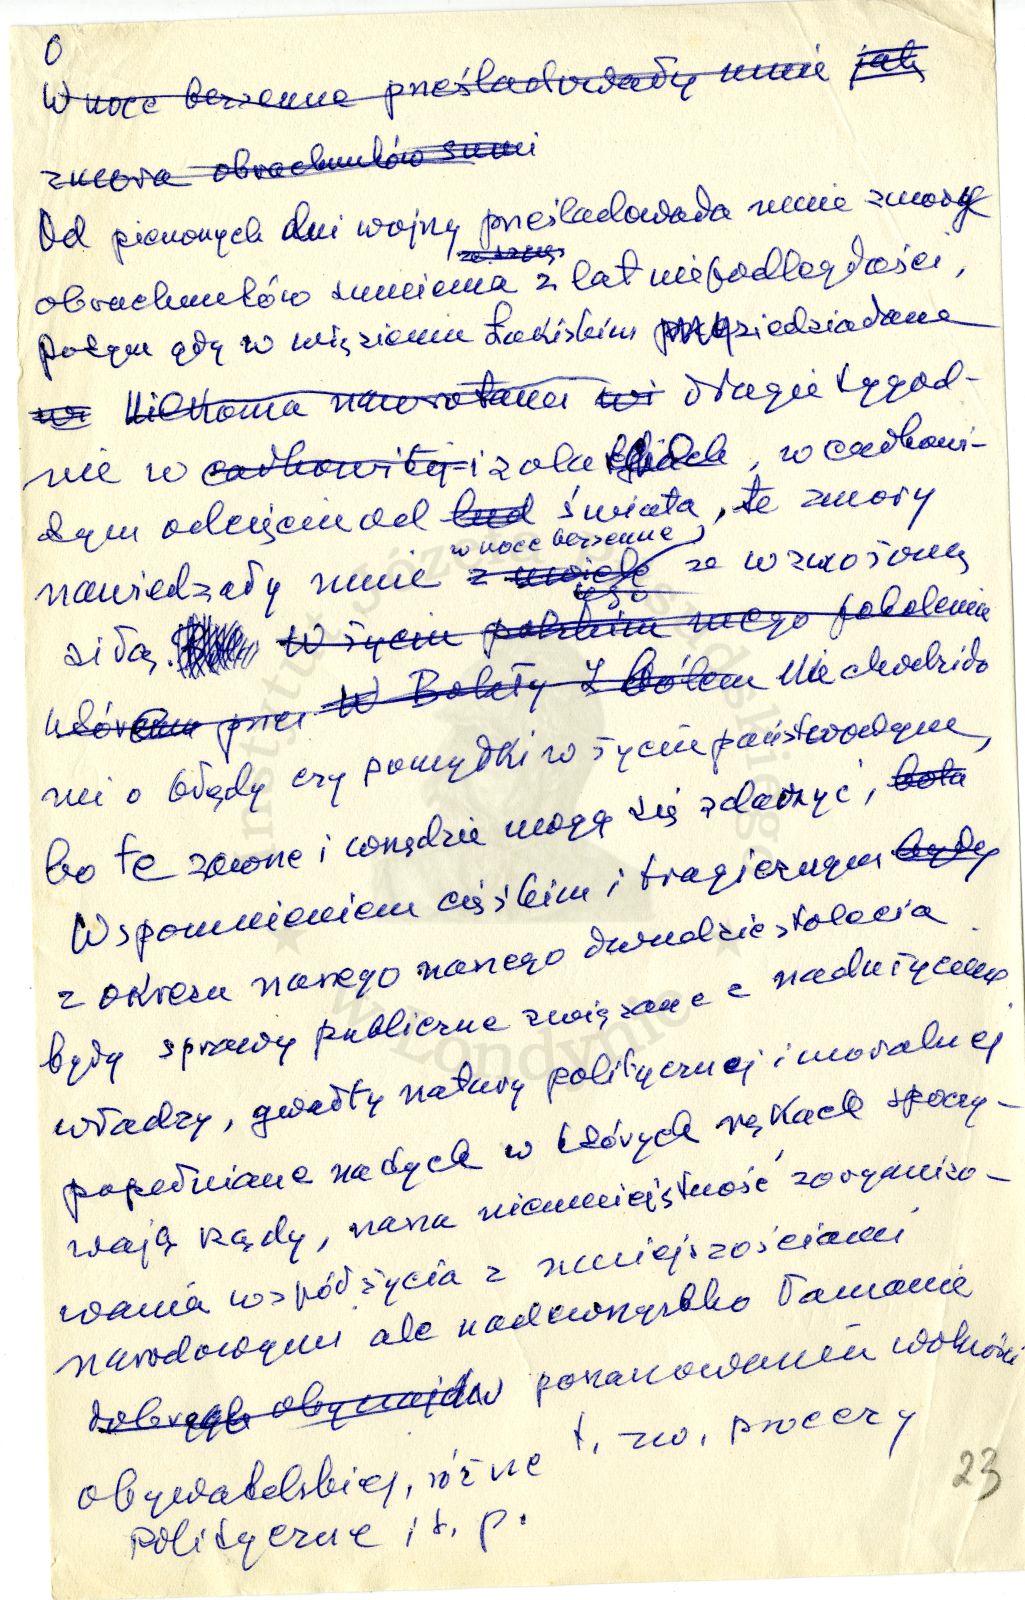 0
W noce bezsenne prześladowały mnie jak
zmora obrachunków sumi
Od pierwszych dni wojny prześladowała mnie zmory
obrachunków sumienia z lat niepodległości,
Potym gdy w więzieniu Łukiskim przesiedziałane
wi kilkoma nawrotami wi długie tygod-
nie w całkowitej izola , w całkowi-
tym odcięciu od lud świata, te zmory
w noce bezsenne
nawiedzały mnie z ze wzmożoną
siłą. W życiu polskim mego pokolenia
W Bolały Z bólem Nie chodziło
mi o błędy czy pomyłki w życiu państwowym,
bo te zawsze i wszędzie mogą się zdarzyć,
Wspomnieniem ciężkim i tragicznym były
z okresu naszego naszego dwudziestolecia
były sprawy publiczne związane z nadużyciem
władzy, gwałty natury politycznej i moralnej
popełniane na tych w których rękach spoczy-
wają rządy, nasza nieumiejętność zorganizo-
wania współżycia z mniejszościami
narodowymi ale nadewszystko łamanie
dobrych obyczajów poszanowania wolności
obywatelskiej, różne t. zw. procezy
polityczne i t. p.
23
Instytut Józefa Piłsudskiego
w Londynie